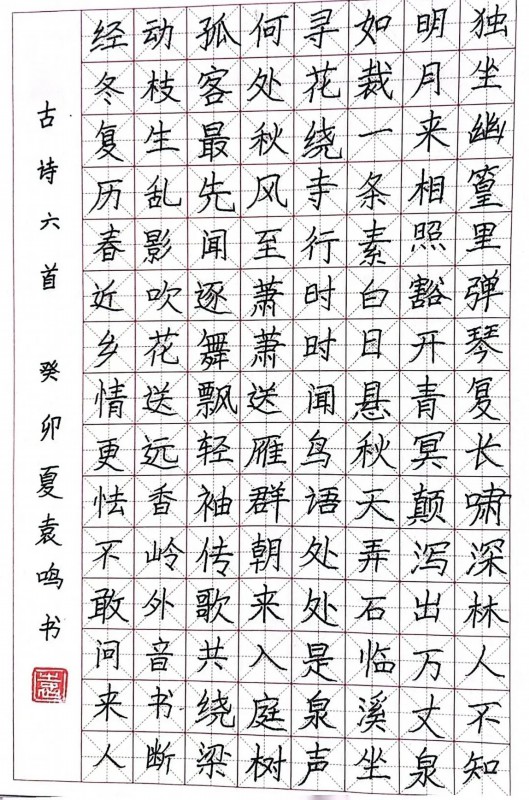 独坐幽篁里弹琴复长啸深林人不知
明月来相照豁开青冥颠泻出万丈泉
如裁一条素白日悬秋天弄石临溪坐
寻花绕寺行时时闻鸟语处处是泉声
何处秋风至萧萧送雁群朝来入庭树
孤客最先闻逐舞飘轻袖传歌共绕梁
动枝生乱影吹花送远香岭外音书断
经冬复历春近乡情更怯不敢问来人
古诗六首 癸卯夏袁鸣书